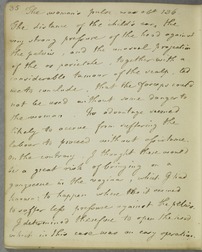 33 The woman's pulse was at 136
The distance of the child's ear, the
very strong pressure of the head against
the pelvis, and the unusual projection
of the os parietale, together with a
considerable tumour of the scalp, led
me to conclude, that the forceps could
not be used without some danger to
the woman. No advantage seemed
likely to accrue from suffering the
labour to proceed without assistance
on the contrary, I thought there would
be a great risk of bringing on a
gangrene in the vagina; what I had
known to happen where the
to suffer pressure against the pelvis
I determined therefore, to open the head
which in this case was an easy operation